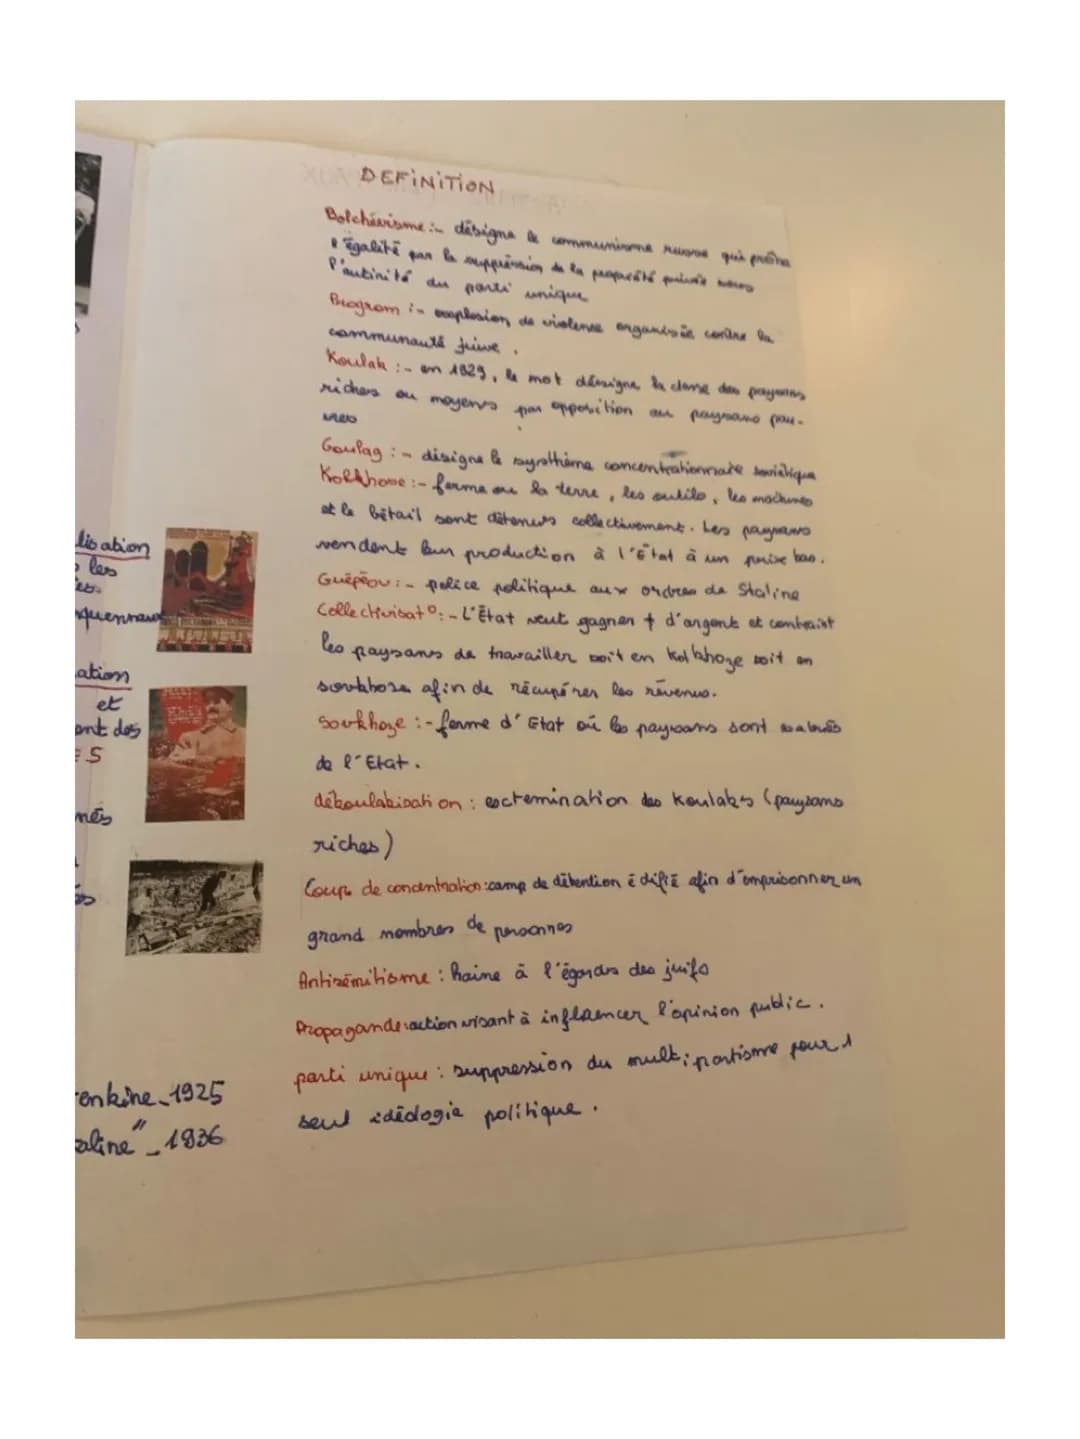 DEFINITION
Bolchévisme :- désigne le communisme russe qui prône
l'égalité par la suppréssion de la propriété privée sous
l'autorité du parti unique
Program :- explosion de violence organisée contre la
communauté juive.
Koulak :- en 1929, le mot désigne la classe des paysans
riches ou moyens par opposition au paysans pau-
vres
Goulag :- désigne le systhème concentrationnaire soviétique
Kolkhose :- ferme ou la terre, les outils, les machines
et le bétail sont détenus collectivement. Les paysans
vendent leur production à l'État à un prixe bas.
Guépéou :- police politique aux ordres de Staline
Collectivisat° :- L'État veut gagner + d'argent et contraint
les paysans de travailler soit en Kolkhoze soit en
sovkhose afin de récupérer les révenus.
Sovkhoze :- ferme d'Etat où les paysans sont salariés
de l'Etat.
dékoulakisation : exctermination des Koulaks (paysans
riches)
de concentration : camp de détention édifié afin d'emprisonner un
grand nombres de personnes
Antisémitisme : haine à l'égards des juifs
Propagande : action visant à influencer l'opinion public.
parti unique : suppression du multipartisme pour 1
seul idéologie politique.
lisation
les
quennaux
ation
et
ent des
= S
nés
enkine_1925
aline"_1936